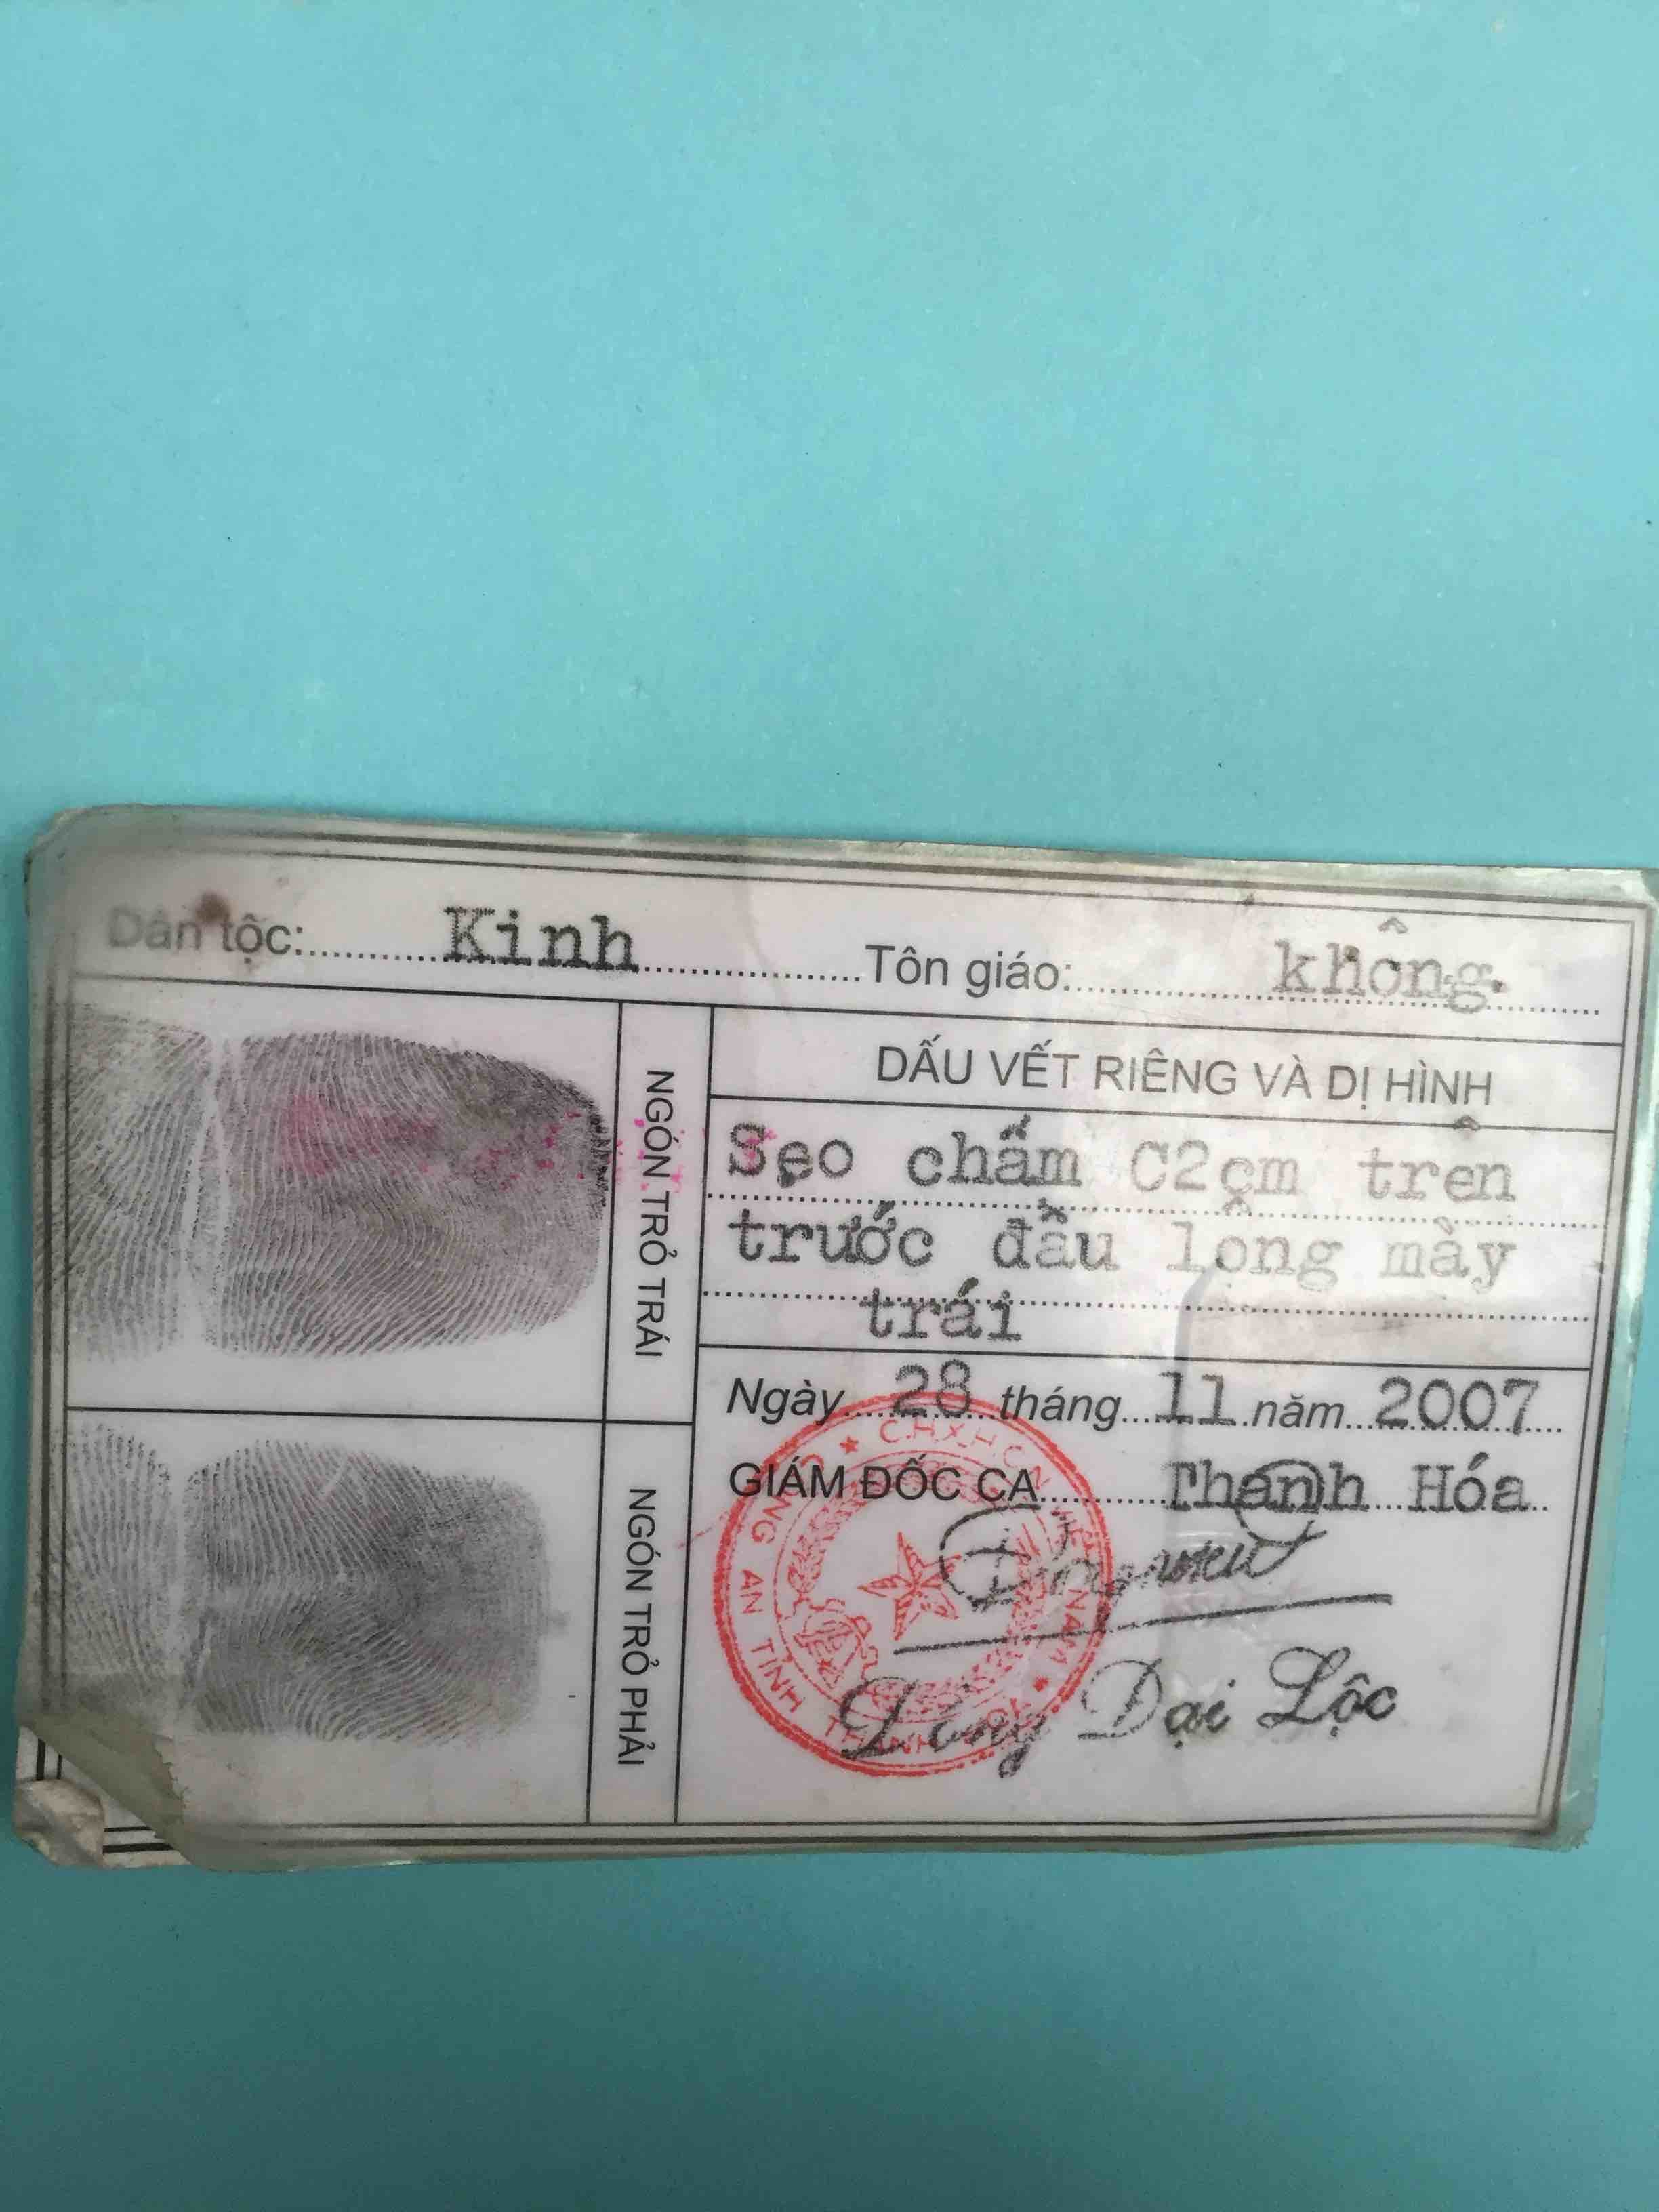 Dân tộc: Kinh Tôn giáo: không.
NGÓN TRỎ TRÁI
DẤU VẾT RIÊNG VÀ DỊ HÌNH
Sẹo chấm C2cm trên
trước đầu lông mày
trái
Ngày 28 tháng 11 năm 2007
GIÁM ĐỐC CA Thanh Hóa
NGÓN TRỎ PHẢI
C.H.X.H.C.N VIỆT NAM
CÔNG AN TỈNH THANH HÓA
Đại Lộc